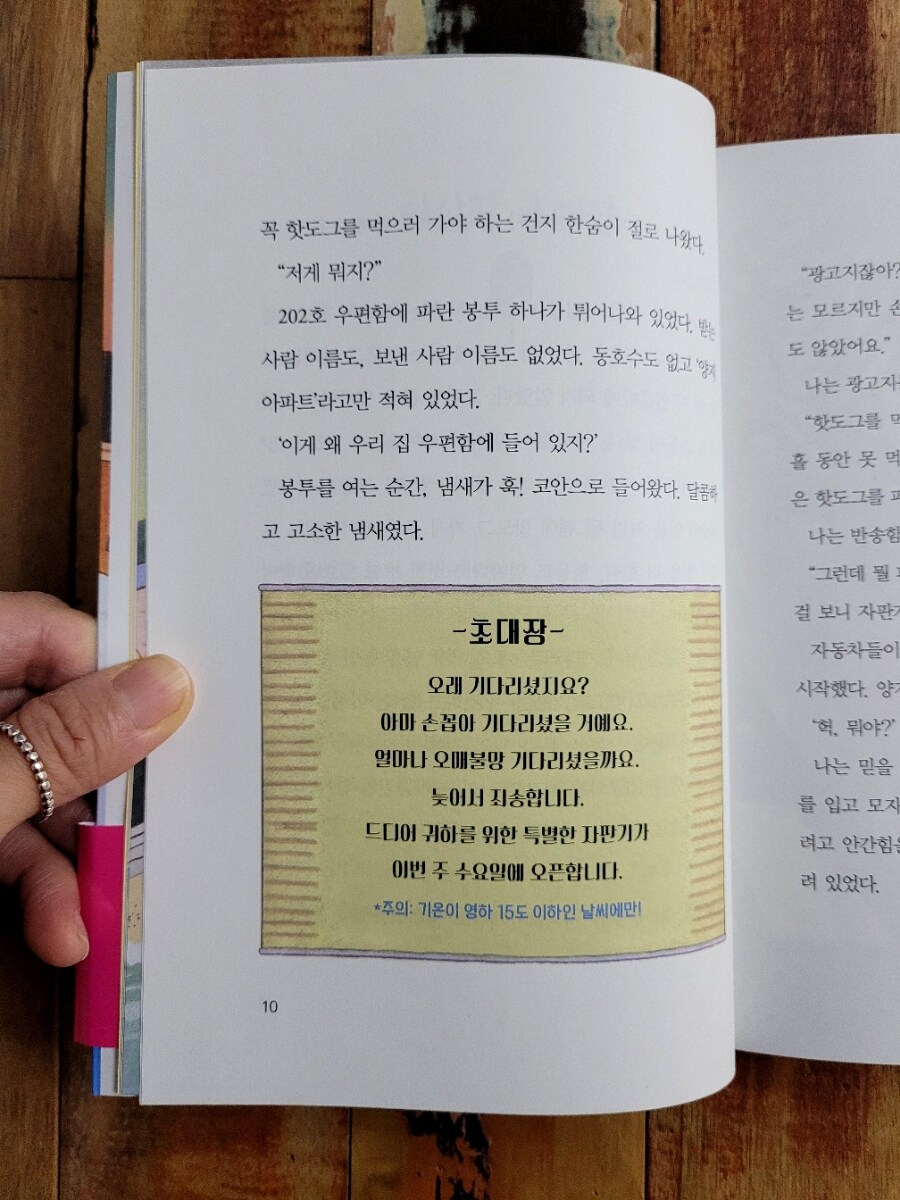 꼭 핫도그를 먹으러 가야 하는 건지 한숨이 절로 나왔다.
“저게 뭐지?”
202호 우편함에 파란 봉투 하나가 튀어나와 있었다. 받는
사람 이름도, 보낸 사람 이름도 없었다. 동호수도 없고 ‘양지
아파트’라고만 적혀 있었다.
‘이게 왜 우리 집 우편함에 들어 있지?’
봉투를 여는 순간, 냄새가 훅! 코안으로 들어왔다. 달콤하
고 고소한 냄새였다.
-초대장-
오래 기다리셨지요?
아마 손꼽아 기다리셨을 거예요.
얼마나 오매불망 기다리셨을까요.
늦어서 죄송합니다.
드디어 귀하를 위한 특별한 자판기가
이번 주 수요일에 오픈합니다.
*주의: 기온이 영하 15도 이하인 날씨에만!
10
“광고지잖아?
는 모르지만 손
도 않았어요.”
나는 광고지
“핫도그를 먹
흘 동안 못 먹
은 핫도그를 파
나는 반송함
“그런데 뭘
걸 보니 자판기
자동차들이
시작했다. 양지
‘헉, 뭐야?’
나는 믿을
를 입고 모자
려고 안간힘을
려 있었다.